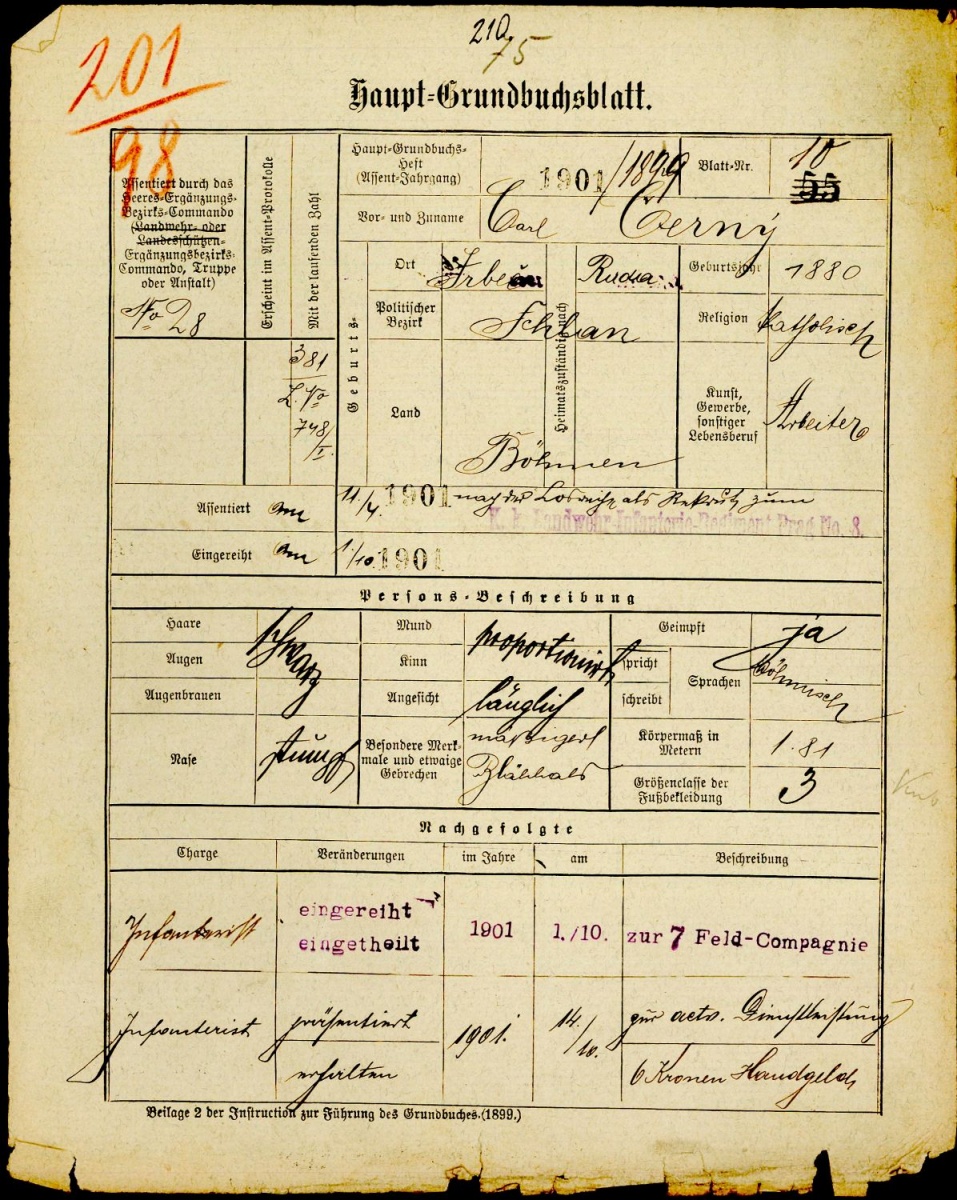 210
75
201
98
Haupt-Grundbuchsblatt.
Assentiert durch das
Heeres-Ergänzungs-
Bezirks-Commando
(Landwehr- oder
Landesschützen-
Ergänzungsbezirks-
Commando, Truppe
oder Anstalt)
No 28
Erscheint im Assent-Protokolle
Mit der laufenden Zahl
381
Z. No
748/I.
Haupt-Grundbuchs-
Heft
(Assent-Jahrgang)
1901/1899
Blatt-Nr.
10
55
Vor- und Zuname
Carl Černý
Geburts-
Ort
Heimatszuständig nach
Ruda
Geburtsjahr
1880
Politischer
Bezirk
Schlan
Religion
katholisch
Land
Böhmen
Kunst,
Gewerbe,
sonstiger
Lebensberuf
Arbeiter
Assentiert am 11./4. 1901 nach der Losreihe als Rekrut zum
K. k. Landwehr-Infanterie-Regiment Prag No. 8.
Eingereiht am 1./10. 1901
Persons-Beschreibung
Haare
Augen
Augenbrauen
schwarz
Nase
stumpf
Mund
Kinn
proportionirt
Angesicht
länglich
Besondere Merk-
male und etwaige
Gebrechen
Blähhals
Geimpft
ja
spricht
schreibt
Sprachen
böhmisch
Körpermaß in
Metern
1.81
Größenclasse der
Fußbekleidung
3
Nachgefolgte
Charge Veränderungen im Jahre am Beschreibung
Infanterist
eingereiht
eingetheilt
1901 1./10. zur 7 Feld-Compagnie
Infanterist präsentiert 1901. 14./10. zur actv. Dienstleistung
erhalten 6 Kronen Handgeld
Beilage 2 der Instruction zur Führung des Grundbuches. (1899.)